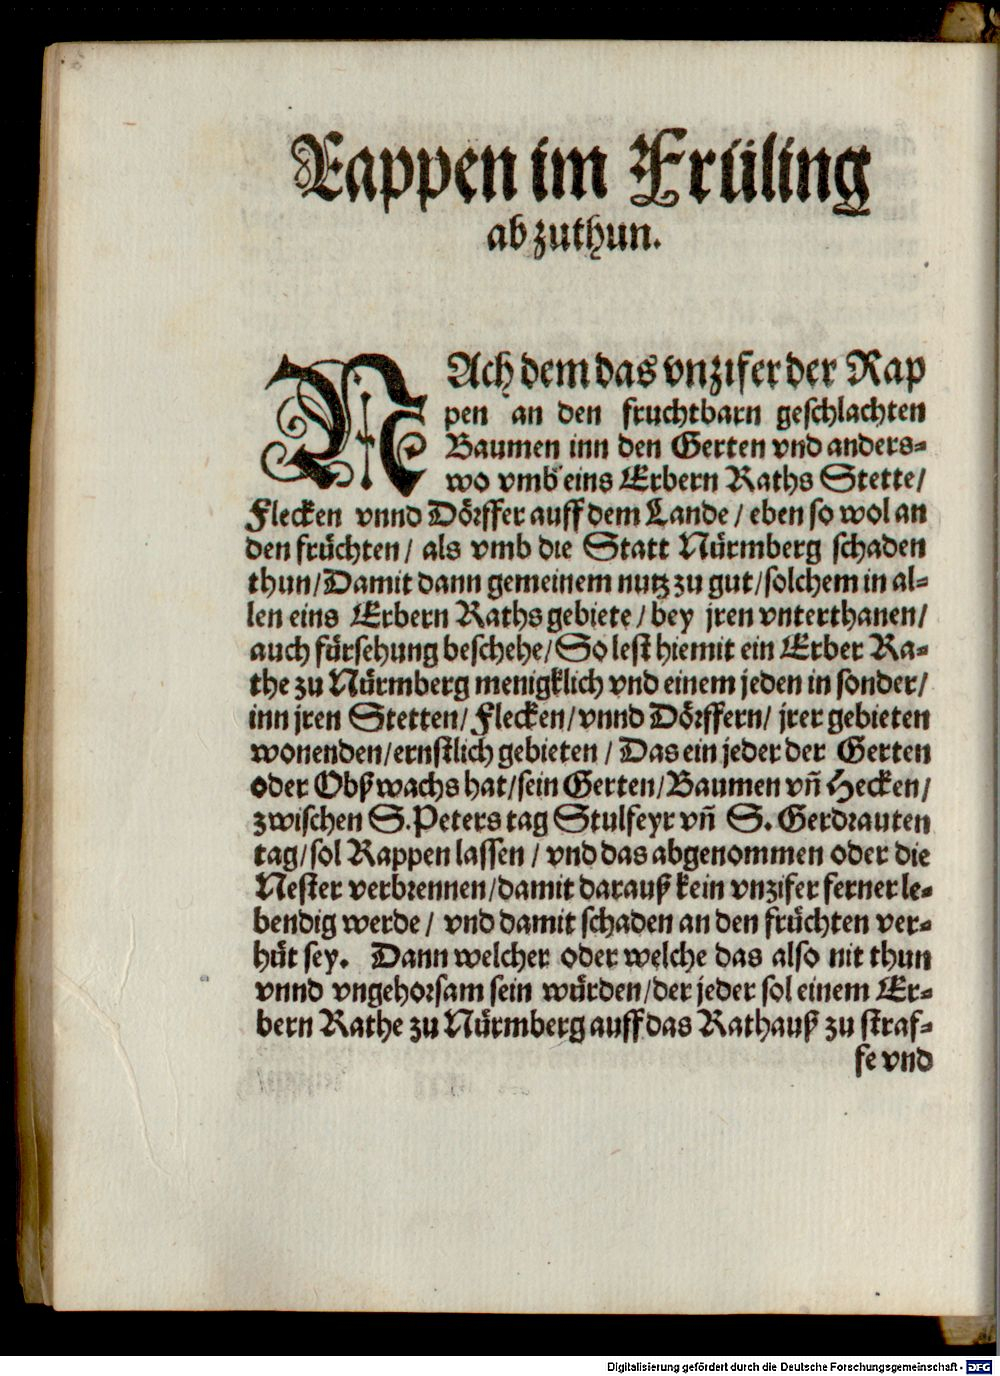 Rappen im Früling
abzuthun.
NAch dem das vnzifer der Rap
pen an den fruchtbarn geschlachten
Baumen inn den Gerten vnd anders-
wo vmb eins Erbern Raths Stette/
Flecken vnnd Dörffer auff dem Lande / eben so wol an
den früchten / als vmb die Statt Nürmberg schaden
thun/Damit dann gemeinem nutz zu gut/solchem in al-
len eins Erbern Raths gebiete / bey jren vnterthanen/
auch fürsehung beschehe/So lest hiemit ein Erber Ra-
the zu Nürmberg menigklich vnd einem jeden in sonder/
inn jren Stetten/Flecken/vnnd Dörffern/ jrer gebieten
wonenden/ernstlich gebieten / Das ein jeder der Gerten
oder Obßwachs hat/sein Gerten/Baumen vñ Hecken/
zwischen S.Peters tag Stulfeyr vñ S. Gerdrauten
tag/sol Rappen lassen / vnd das abgenommen oder die
Nester verbrennen/damit darauß kein vnzifer ferner le-
bendig werde / vnd damit schaden an den früchten ver-
hüt sey. Dann welcher oder welche das also nit thun
vnnd vngehorsam sein würden/der jeder sol einem Er-
bern Rathe zu Nürmberg auff das Rathauß zu straf-
fe vnd
Digitalisierung gefördert durch die Deutsche Forschungsgemeinschaft - DFG